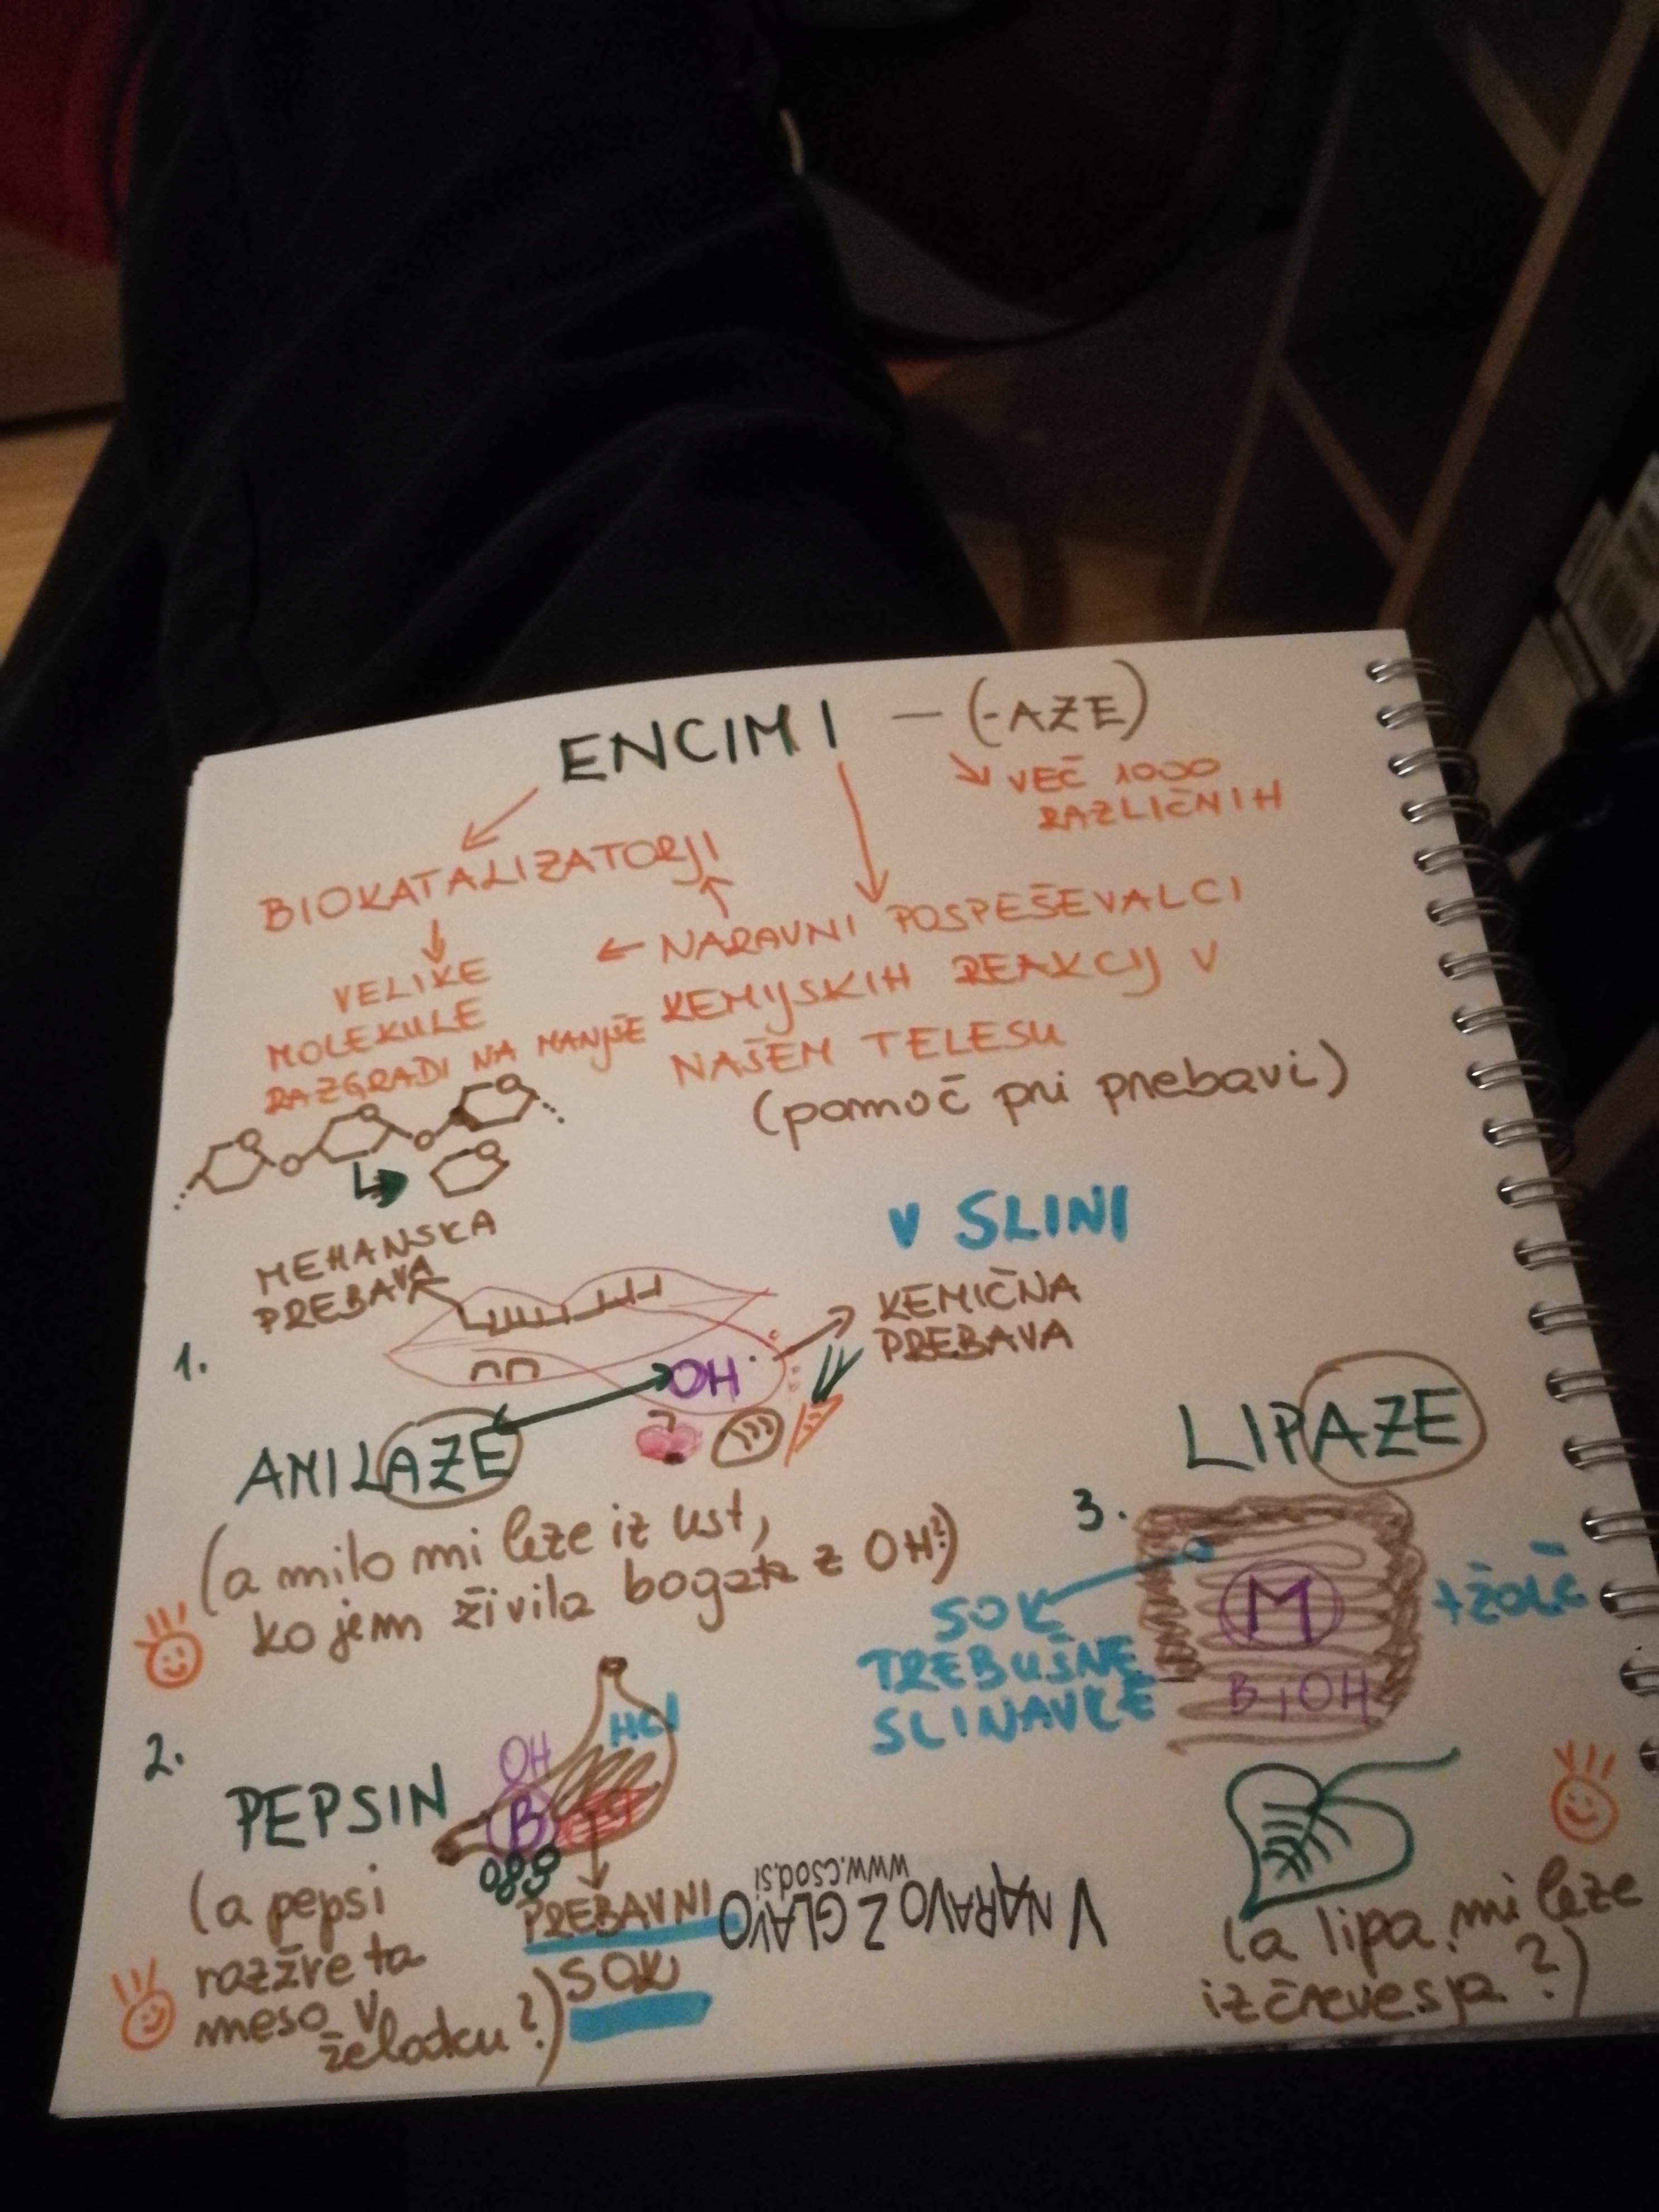 ENCIMI — (-AZE)
VEČ 1000
RAZLIČNIH
BIOKATALIZATORJI
VELIKE
MOLEKULE
RAZGRADI NA MANJŠE
NARAVNI POSPEŠEVALCI
KEMIJSKIH REAKCIJ V
NAŠEM TELESU
(pomoč pri prebavi)
MEHANSKA
PREBAVA
V SLINI
KEMIČNA
PREBAVA
1.
OH
AMILAZE
(a milo mi leze iz ust,
ko jem živila bogata z OH?)
LIPAZE
3.
M
B, OH
SOK
TREBUŠNE
SLINAVKE
+ŽOLČ
2.
PEPSIN
OH
B
HCl
(a pepsi
razžre ta
meso v
želodcu?)
PREBAVNI
SOK
(a lipa mi leze
iz črevesja?)
V NARAVO Z GLAVO
www.csod.si